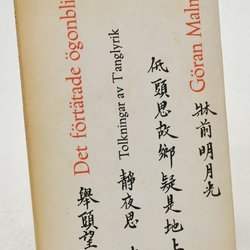 Det förtätade ögonbli
Tolkningar av T'anglyrik
Göran Malm
牀前明月光
低頭思故鄉 疑是地上
靜夜思
舉頭望